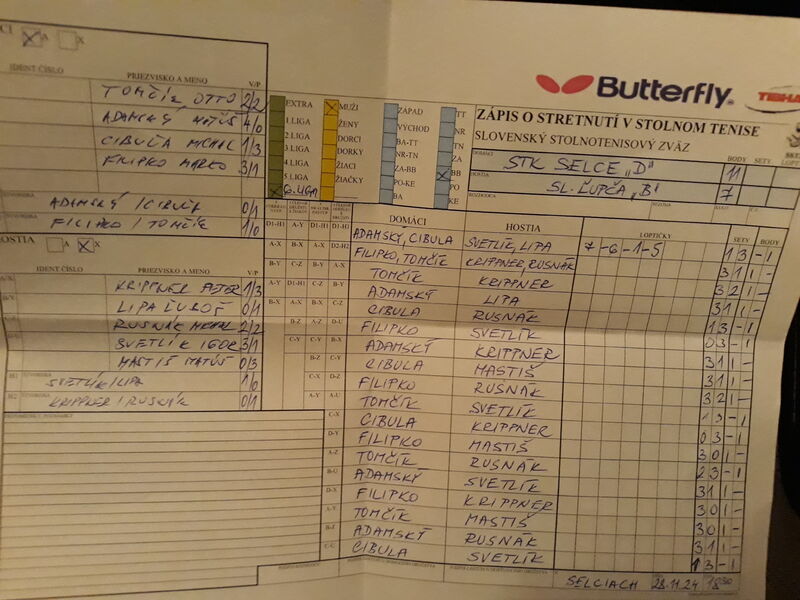 A X
IDENT ČÍSLO PRIEZVISKO A MENO V/P
TOMČÍK OTTO 2/2
ADAMSKÝ MATÚŠ 4/0
CIBUĽA MICHAL 1/3
FILIPKO MARKO 3/1
ADAMSKÝ / CIBUĽA 0/1
FILIPKO / TOMČÍK 1/0
HOSTIA A X
IDENT ČÍSLO PRIEZVISKO A MENO V/P
KRIPPNER PETER 1/3
LIPA ĽUBOŠ 0/1
RUSNÁK MICHAL 2/2
SVETLÍK IGOR 3/1
MASTIŠ MATÚŠ 0/3
SVETLÍK / LIPA 1/0
KRIPPNER / RUSNÁK 0/1
Butterfly
EXTRA
1.LIGA
2.LIGA
3.LIGA
4.LIGA
5.LIGA
6.LIGA
MUŽI
ŽENY
DORCI
DORKY
ŽIACI
ŽIAČKY
ZÁPAD
VÝCHOD
BA-TT
NR-TN
ZA-BB
PO-KE
BA
TT
NR
TN
ZA
BB
PO
KE
ZÁPIS O STRETNUTÍ V STOLNOM TENISE
SLOVENSKÝ STOLNOTENISOVÝ ZVÄZ
DOMÁCI STK SELCE „D" BODY 11 SETY
HOSTIA SL. ĽUPČA „B" 7
ROZHODCA
DOMÁCI HOSTIA LOPTIČKY SETY BODY
ADAMSKÝ, CIBULA SVETLÍK, LIPA 7 -6 -1 -5 1 3 - 1
FILIPKO, TOMČÍK KRIPPNER, RUSNÁK 3 1 1 -
TOMČÍK KRIPPNER 3 2 1 -
ADAMSKÝ LIPA 3 1 1 -
CIBULA RUSNÁK 1 3 - 1
FILIPKO SVETLÍK 0 3 - 1
ADAMSKÝ KRIPPNER 3 1 1 -
CIBULA MASTIŠ 3 1 1 -
FILIPKO RUSNÁK 3 2 1 -
TOMČÍK SVETLÍK 1 3 - 1
CIBULA KRIPPNER 0 3 - 1
FILIPKO MASTIŠ 3 0 1 -
TOMČÍK RUSNÁK 2 3 - 1
ADAMSKÝ SVETLÍK 3 1 1 -
FILIPKO KRIPPNER 3 0 1 -
TOMČÍK MASTIŠ 3 0 1 -
ADAMSKÝ RUSNÁK 3 1 1 -
CIBULA SVETLÍK 1 3 - 1
SELCIACH 28.11.24 18:30